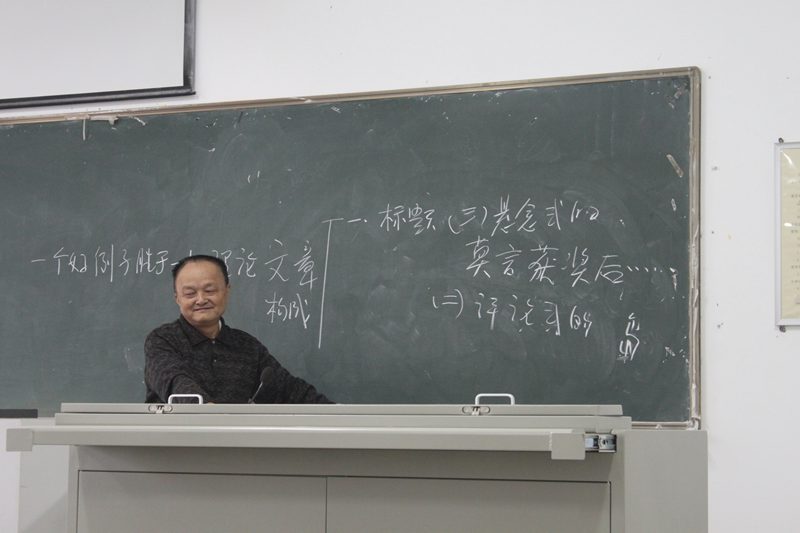 一个好例子胜于一 理论
文章
构成
一. 标题 (三) 悬念式的
莫言获奖后……
(二) 评论式的